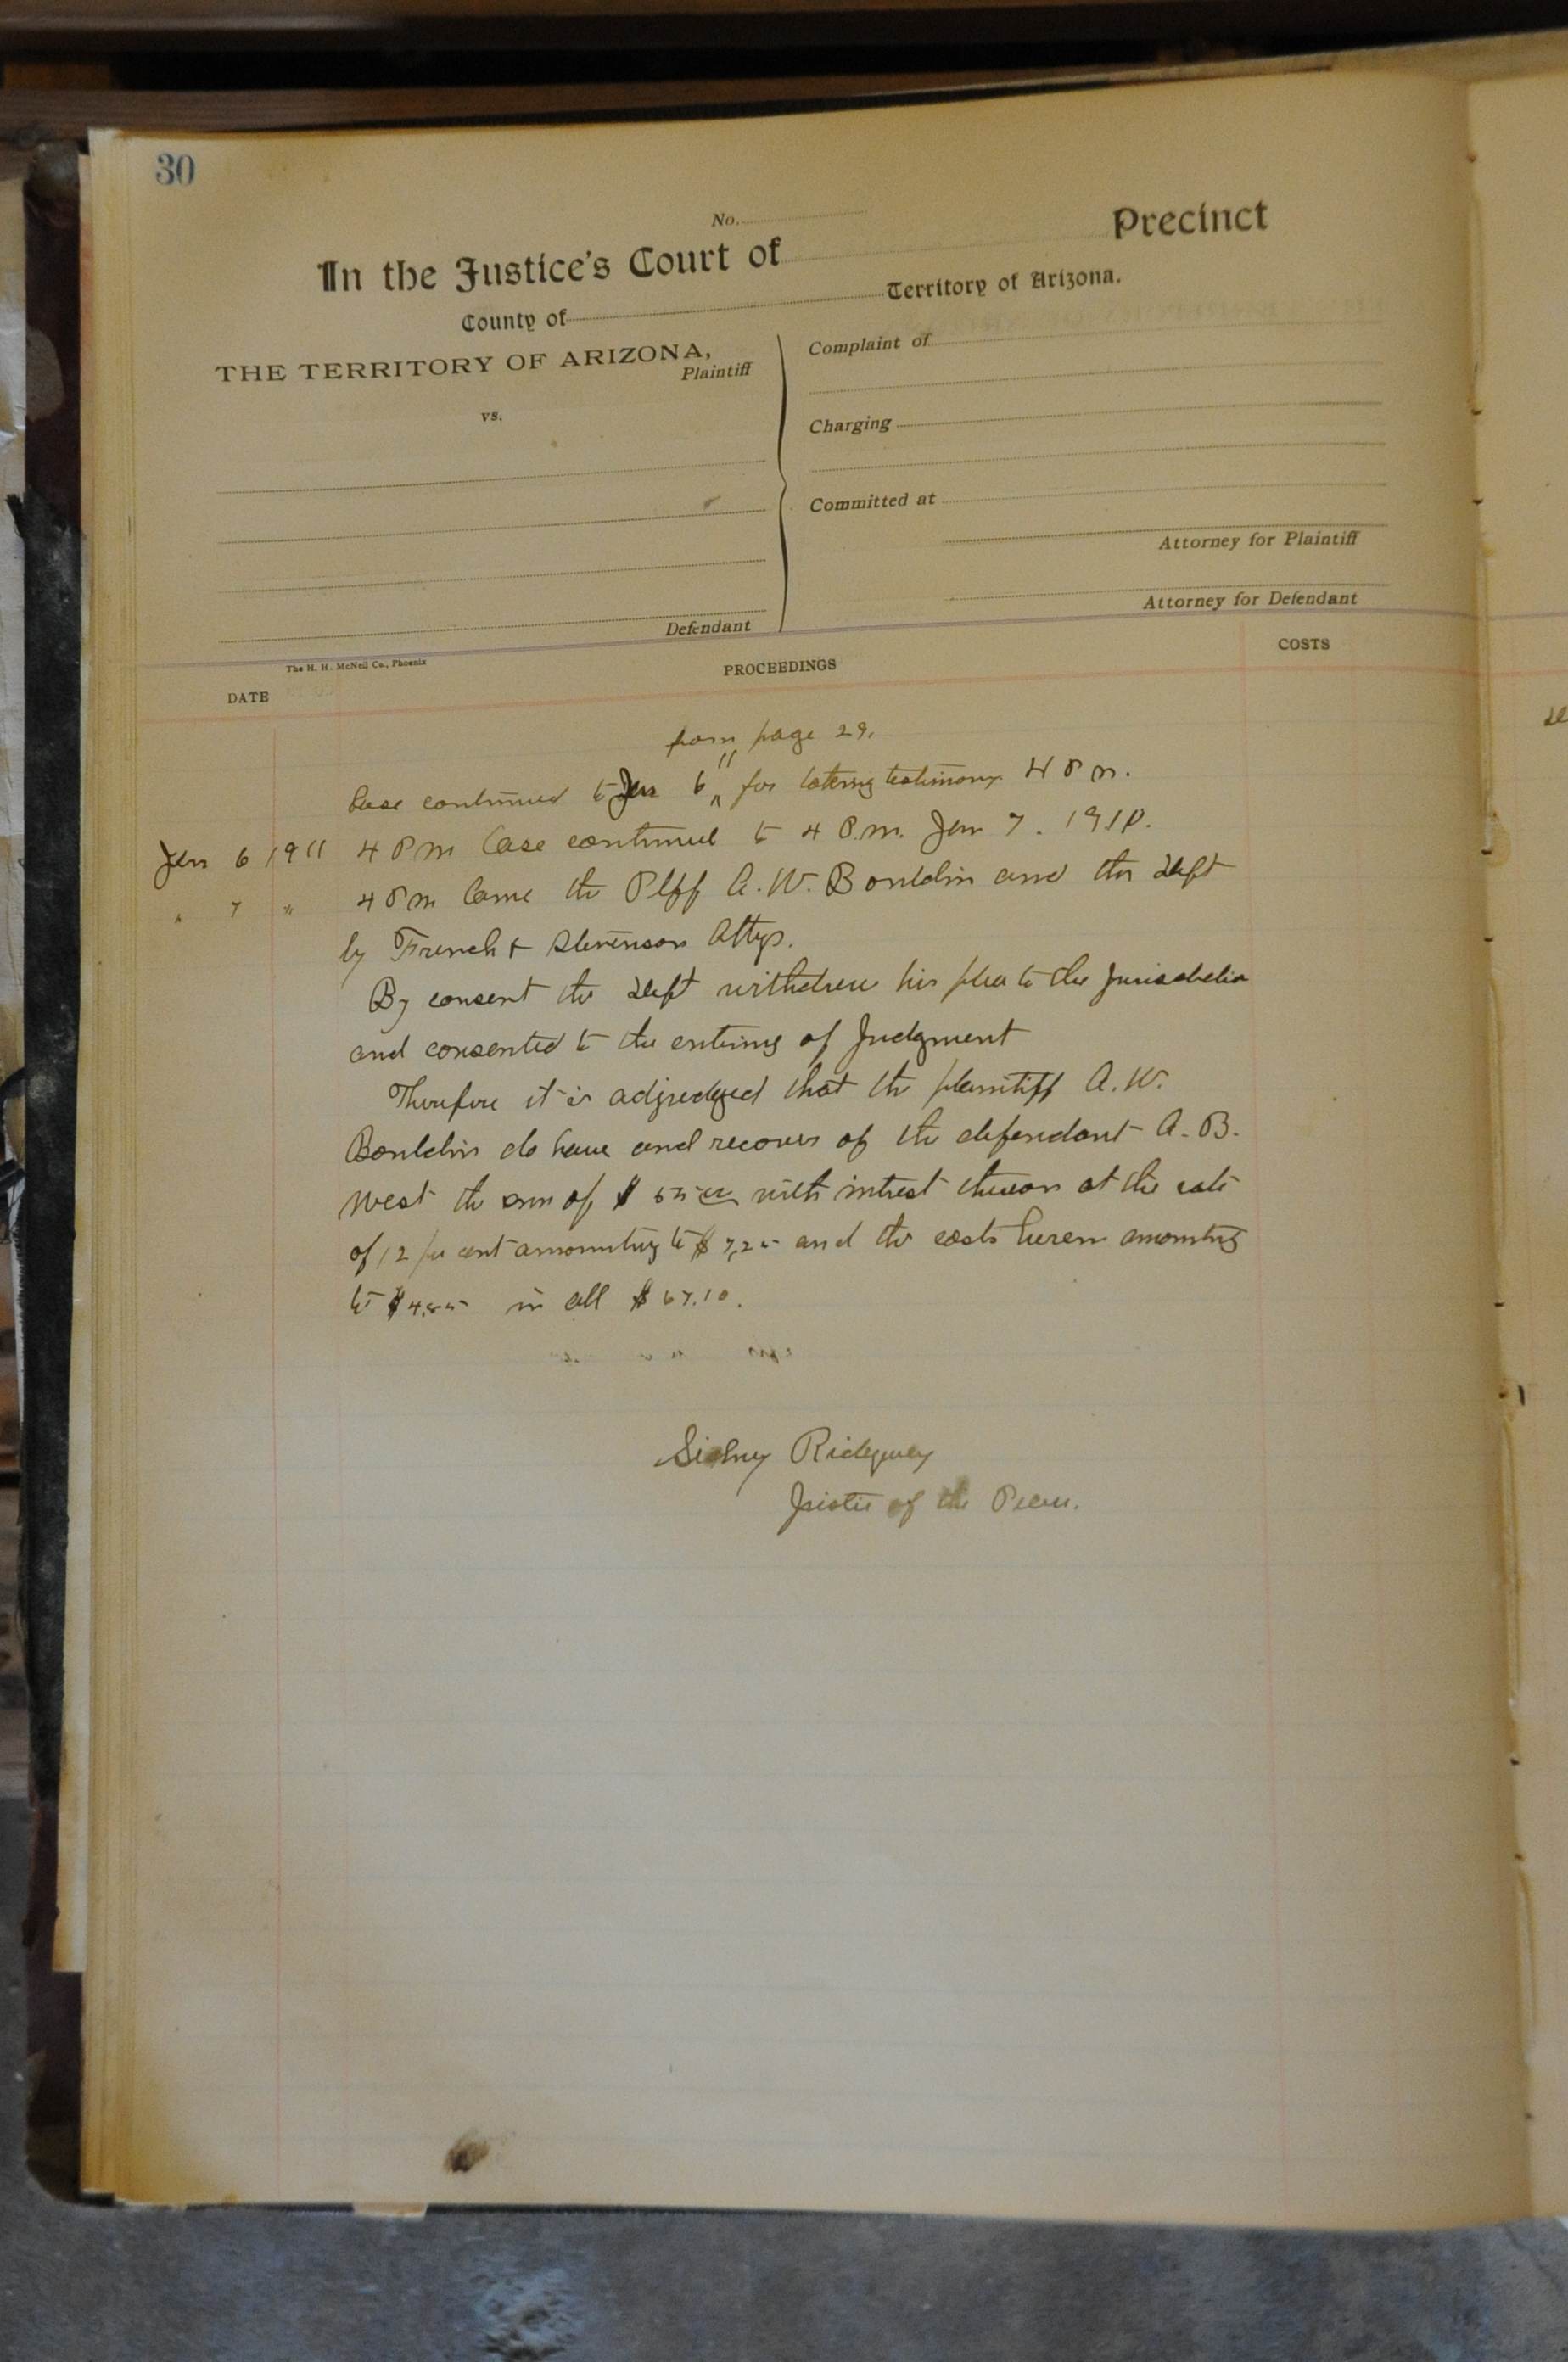 30
No.
In the Justice's Court of Precinct
County of Territory of Arizona.
THE TERRITORY OF ARIZONA,
Plaintiff
vs.
Defendant
Complaint of
Charging
Committed at
Attorney for Plaintiff
Attorney for Defendant
The H. H. McNeil Co., Phoenix
DATE PROCEEDINGS COSTS
from page 29.
Case continued to Jan 6" for taking testimony 4 P m.
Jan 6 1911 4 P m Case continued to 4 P.m. Jan 7. 1910.
" 7 " 4 P m Came the Plff A. W. Bouldin and the Deft
by French & Stevenson Attys.
By consent the Deft withdrew his plea to the Jurisdiction
and consented to the entering of Judgment
Therefore it is adjudged that the plaintiff A. W.
Bouldin do have and recover of the defendant A. B.
West the sum of $ 55 00 with intrest thereon at the rate
of 12 per cent amounting to $ 7,25 and the costs herein amounting
to $4.85 in all $ 67.10.
Sidney Ridgway
Justice of the Peace.